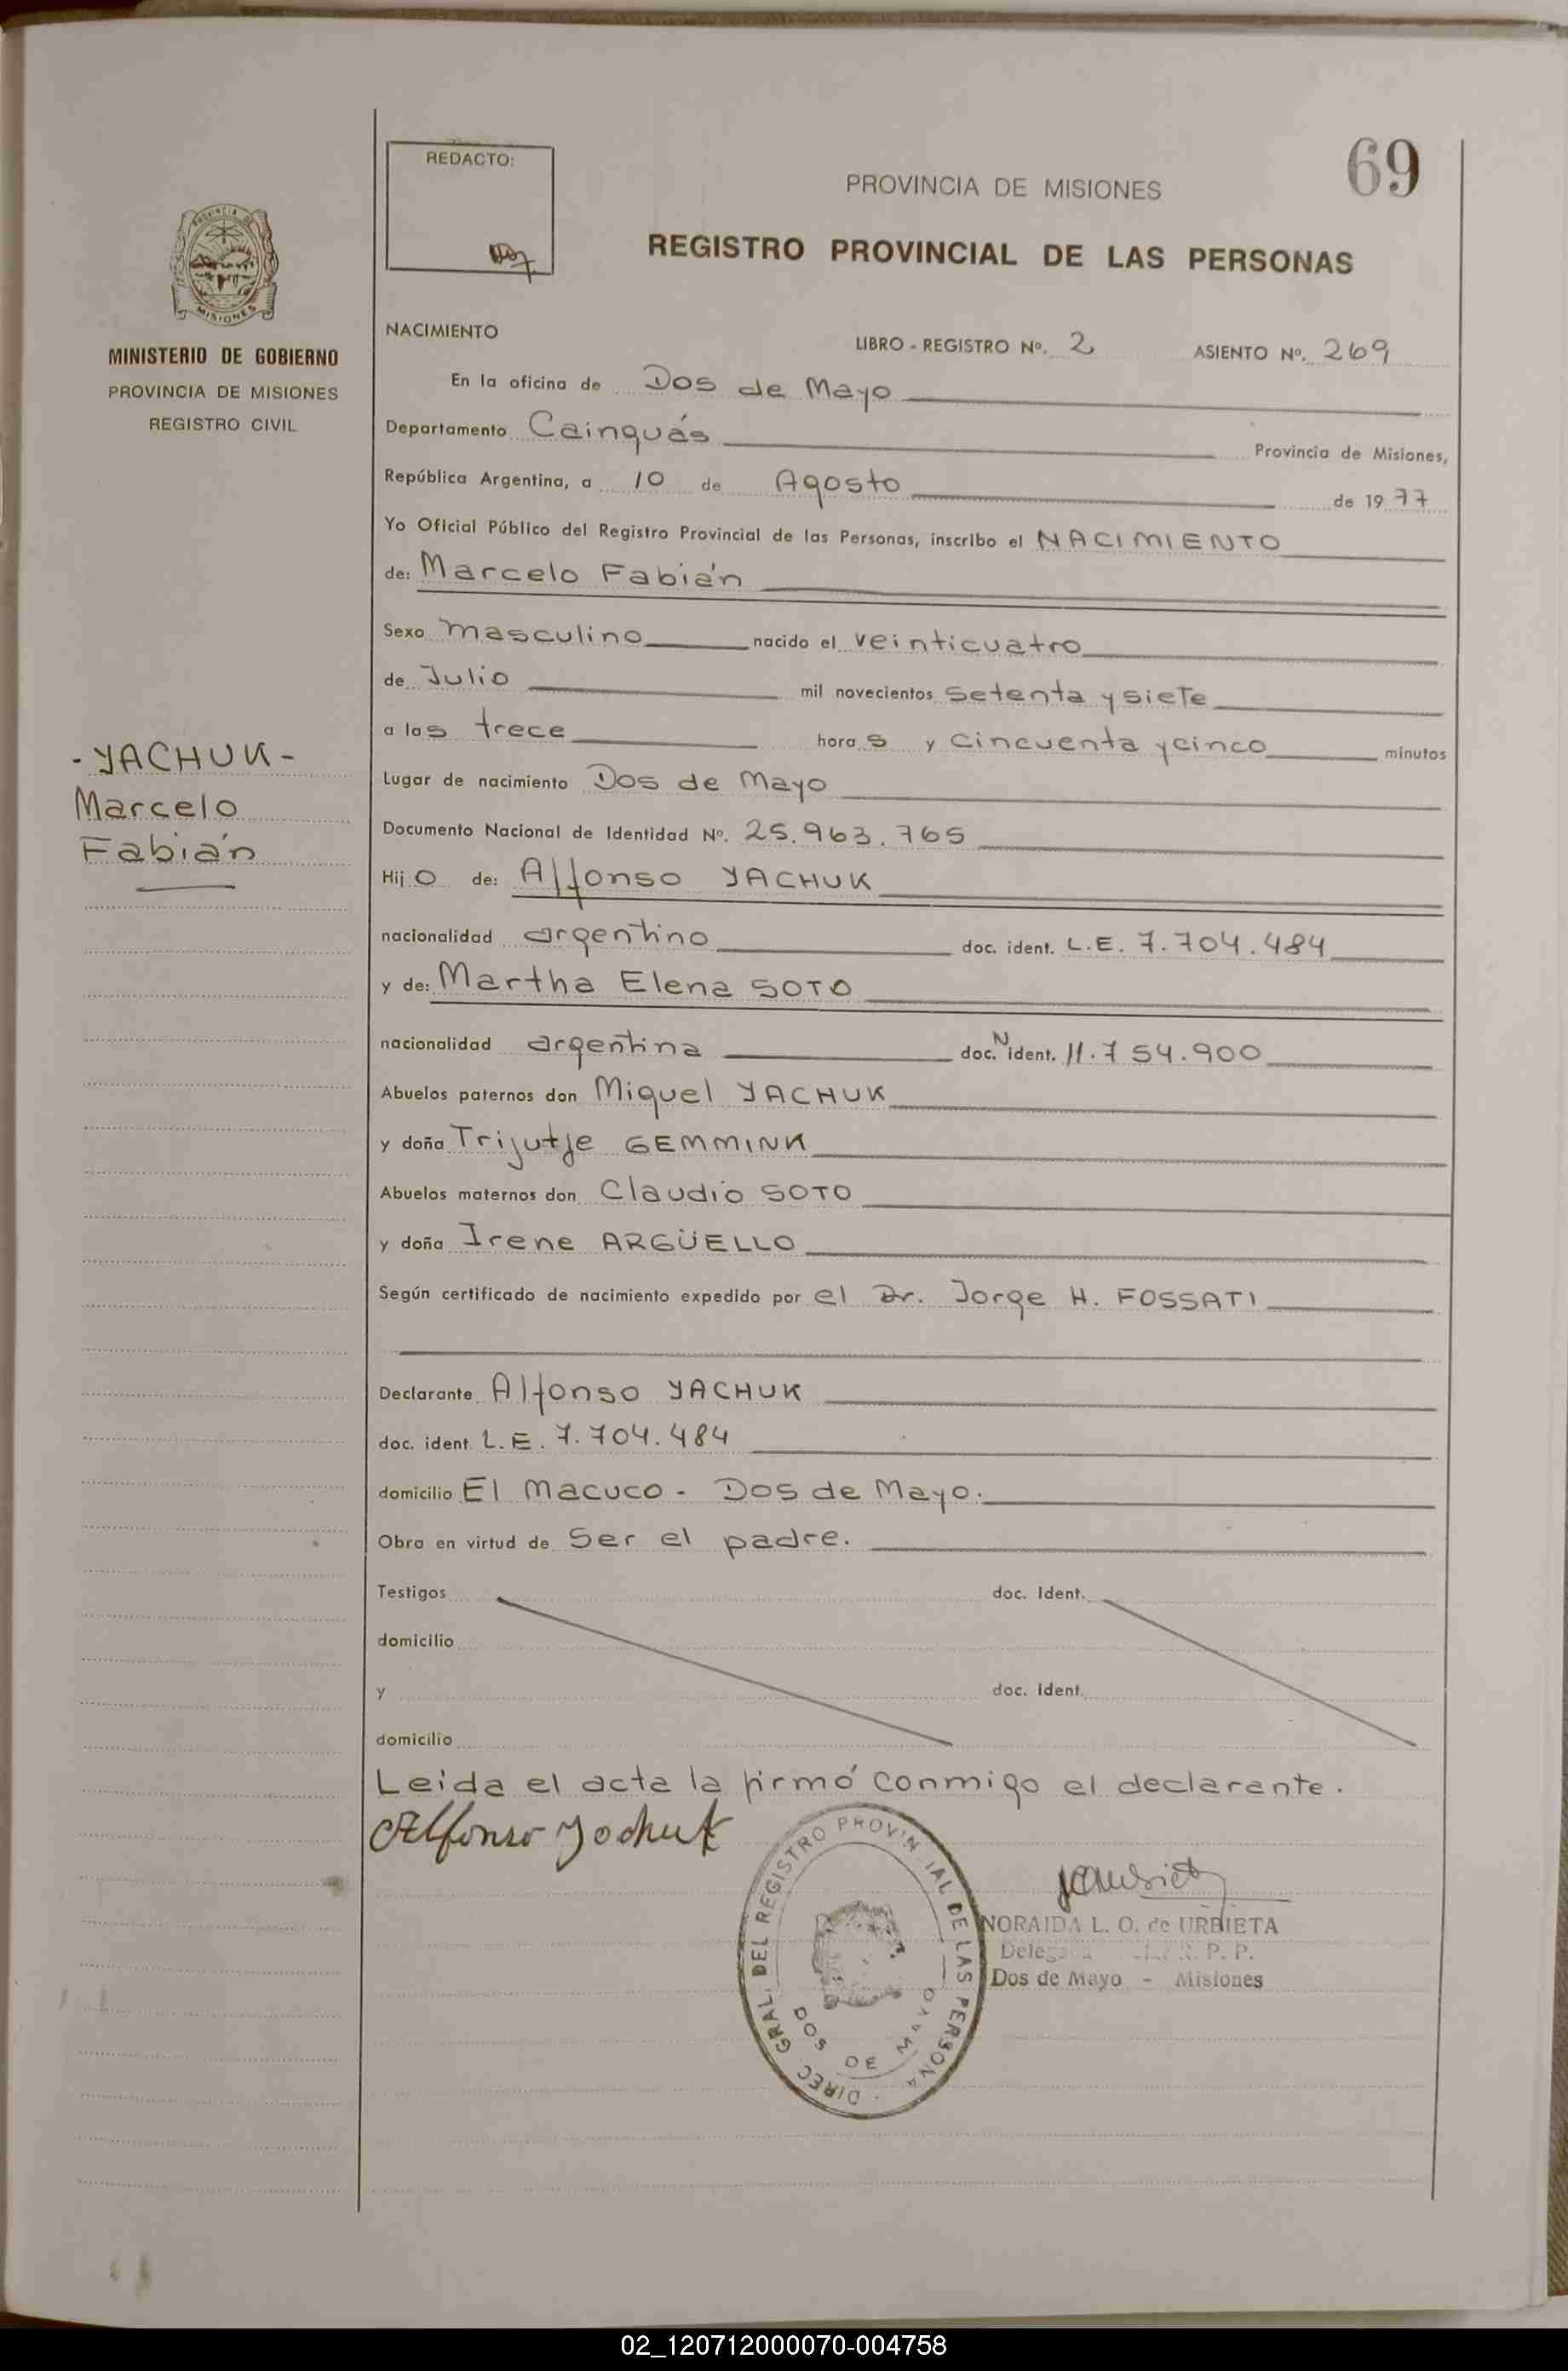 69
REDACTO:
PROVINCIA DE MISIONES
REGISTRO PROVINCIAL DE LAS PERSONAS
PROVINCIA DE
MISIONES
MINISTERIO DE GOBIERNO
PROVINCIA DE MISIONES
REGISTRO CIVIL
NACIMIENTO
LIBRO - REGISTRO Nº. 2 ASIENTO Nº. 269
En la oficina de Dos de Mayo
Departamento Cainguás Provincia de Misiones,
República Argentina, a 10 de Agosto de 1977
Yo Oficial Público del Registro Provincial de las Personas, inscribo el NACIMIENTO
de: Marcelo Fabián
Sexo masculino nacido el veinticuatro
de Julio mil novecientos setenta y siete
a las trece horas y cincuenta y cinco minutos
- YACHUK -
Marcelo
Fabián
Lugar de nacimiento Dos de Mayo
Documento Nacional de Identidad Nº. 25.963.765
Hijo de: Alfonso YACHUK
nacionalidad argentino doc. ident. L.E. 7.704.484
y de: Martha Elena SOTO
nacionalidad argentina doc. N ident. 11.754.900
Abuelos paternos don Miguel YACHUK
y doña Trijutje GEMMINK
Abuelos maternos don Claudio SOTO
y doña Irene ARGÜELLO
Según certificado de nacimiento expedido por el Dr. Jorge H. FOSSATI
Declarante Alfonso YACHUK
doc. ident L.E. 7.704.484
domicilio El Macuco - Dos de Mayo.
Obra en virtud de Ser el padre.
Testigos doc. Ident.
domicilio
y doc. Ident.
domicilio
Leida el acta la firmó conmigo el declarante.
Alfonso Yachuk
DIREC. GRAL. DEL REGISTRO PROVINCIAL DE LAS PERSONAS
DOS DE MAYO
NORAIDA L. O. de URBIETA
R. P. P.
Dos de Mayo - Misiones
02_120712000070-004758